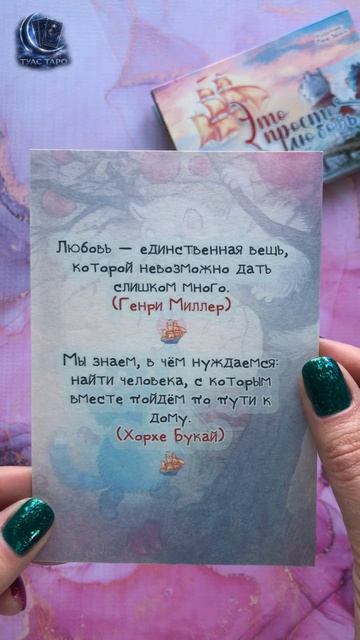 ТУАС ТАРО
Это
просто
любовь
Любовь — единственная вещь,
которой невозможно дать
слишком много.
(Генри Миллер)
Мы знаем, в чём нуждаемся:
найти человека, с которым
вместе пойдём по пути к
дому.
(Хорхе Букай)